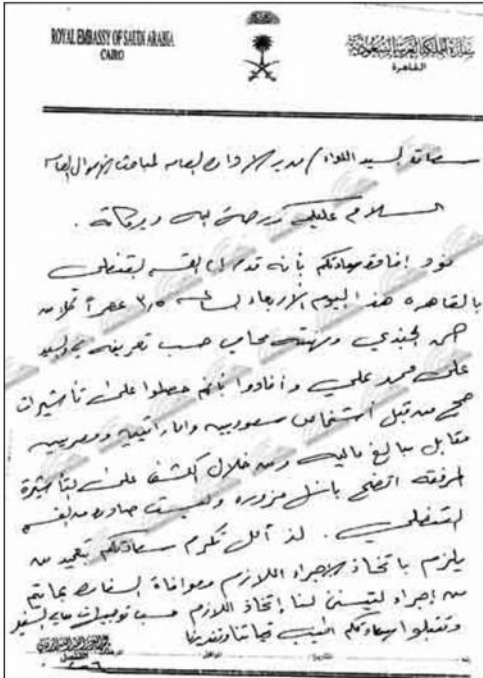 ROYAL EMBASSY OF SAUDI ARABIA
CAIRO
سفارة المملكة العربية السعودية
القاهرة
سعادة السيد اللواء / مدير الادارة العامة لمباحث الاموال العامة
السلام عليكم ورحمة الله وبركاته .
نود إفادة سعادتكم بأنه قد القسم القنصلي
بالقاهرة هذا اليوم الأربعاء الساعة ٣,٥ عصراً كلا من
الجندي ومهنته محامي حسب تعريفه والسيد
علي محمد علي وأفادوا بأنهم حصلوا على تأشيرات
حج من قبل أشخاص سعوديين واماراتيين ومصريين
مقابل مبالغ مالية ومن خلال الكشف على التأشيرة
المرفقة اتضح بأنها مزورة وليست صادرة من القسم
القنصلي . لذ آمل تكرم سعادتكم من
يلزم باتخاذ الاجراء اللازم وموافاة السفارة بما يتم
من إجراء ليتسنى لنا إتخاذ اللازم حسب توجيهات معالي السفير
وتقبلوا سعادتكم أطيب تحياتنا وتقديرنا